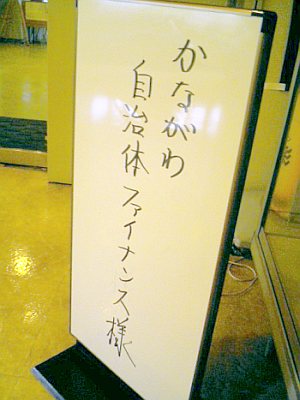 かながわ
自治体ファイナンス様